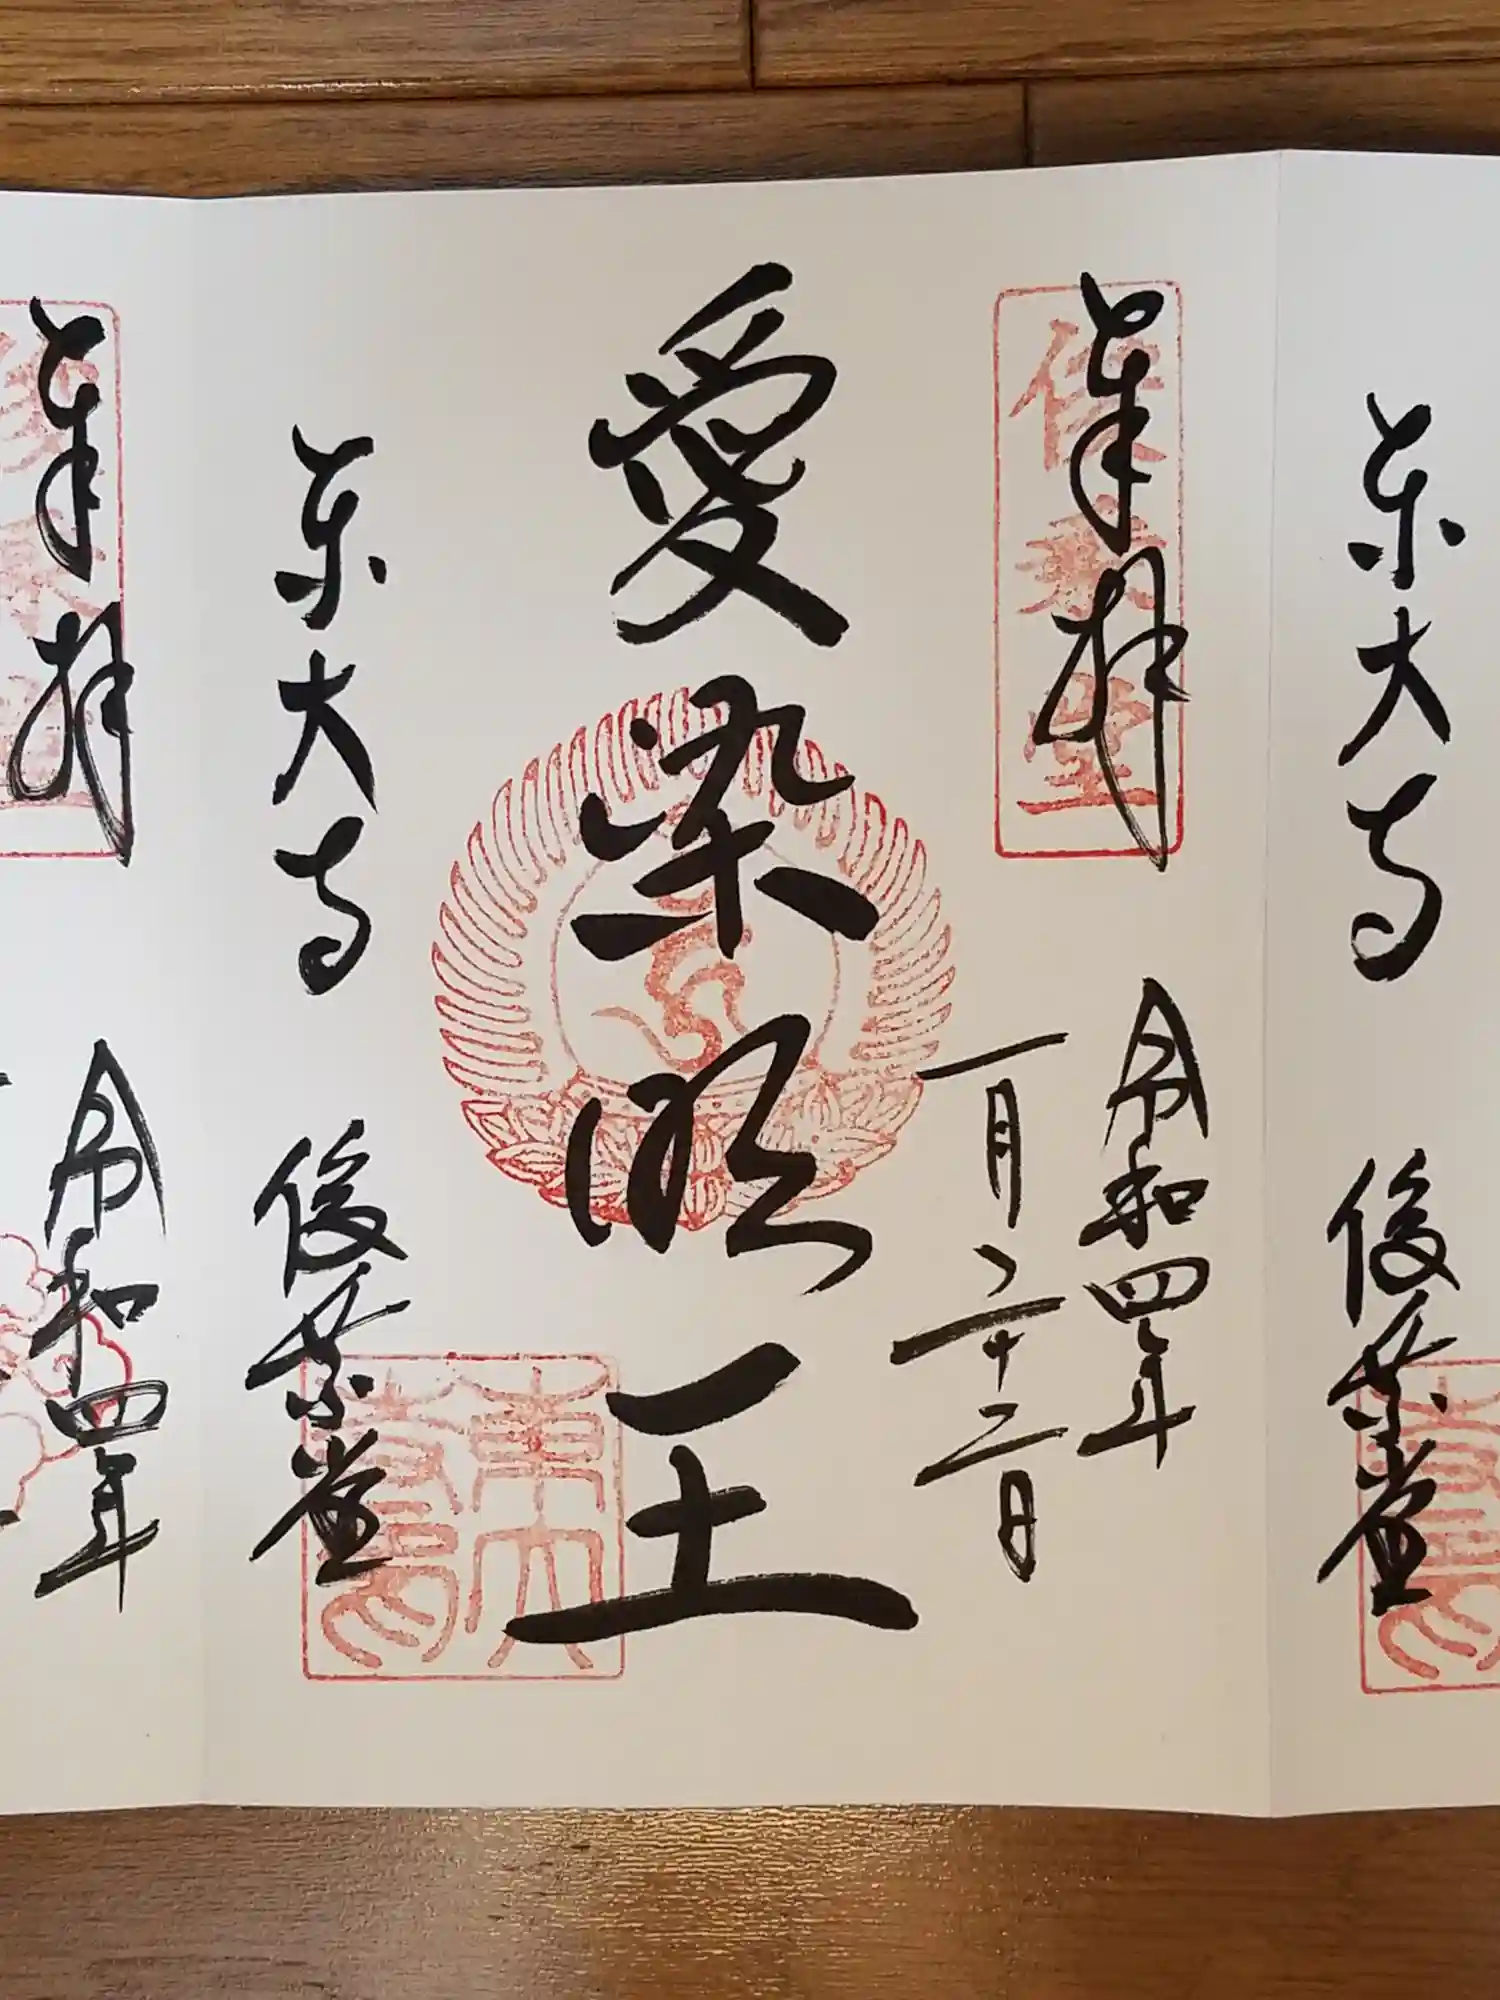 東大寺 俊乗堂
奉拝
俊乗堂
令和四年
一月二十二日
愛染明王
東大寺 俊乗堂
奉拝
俊乗堂
令和四年